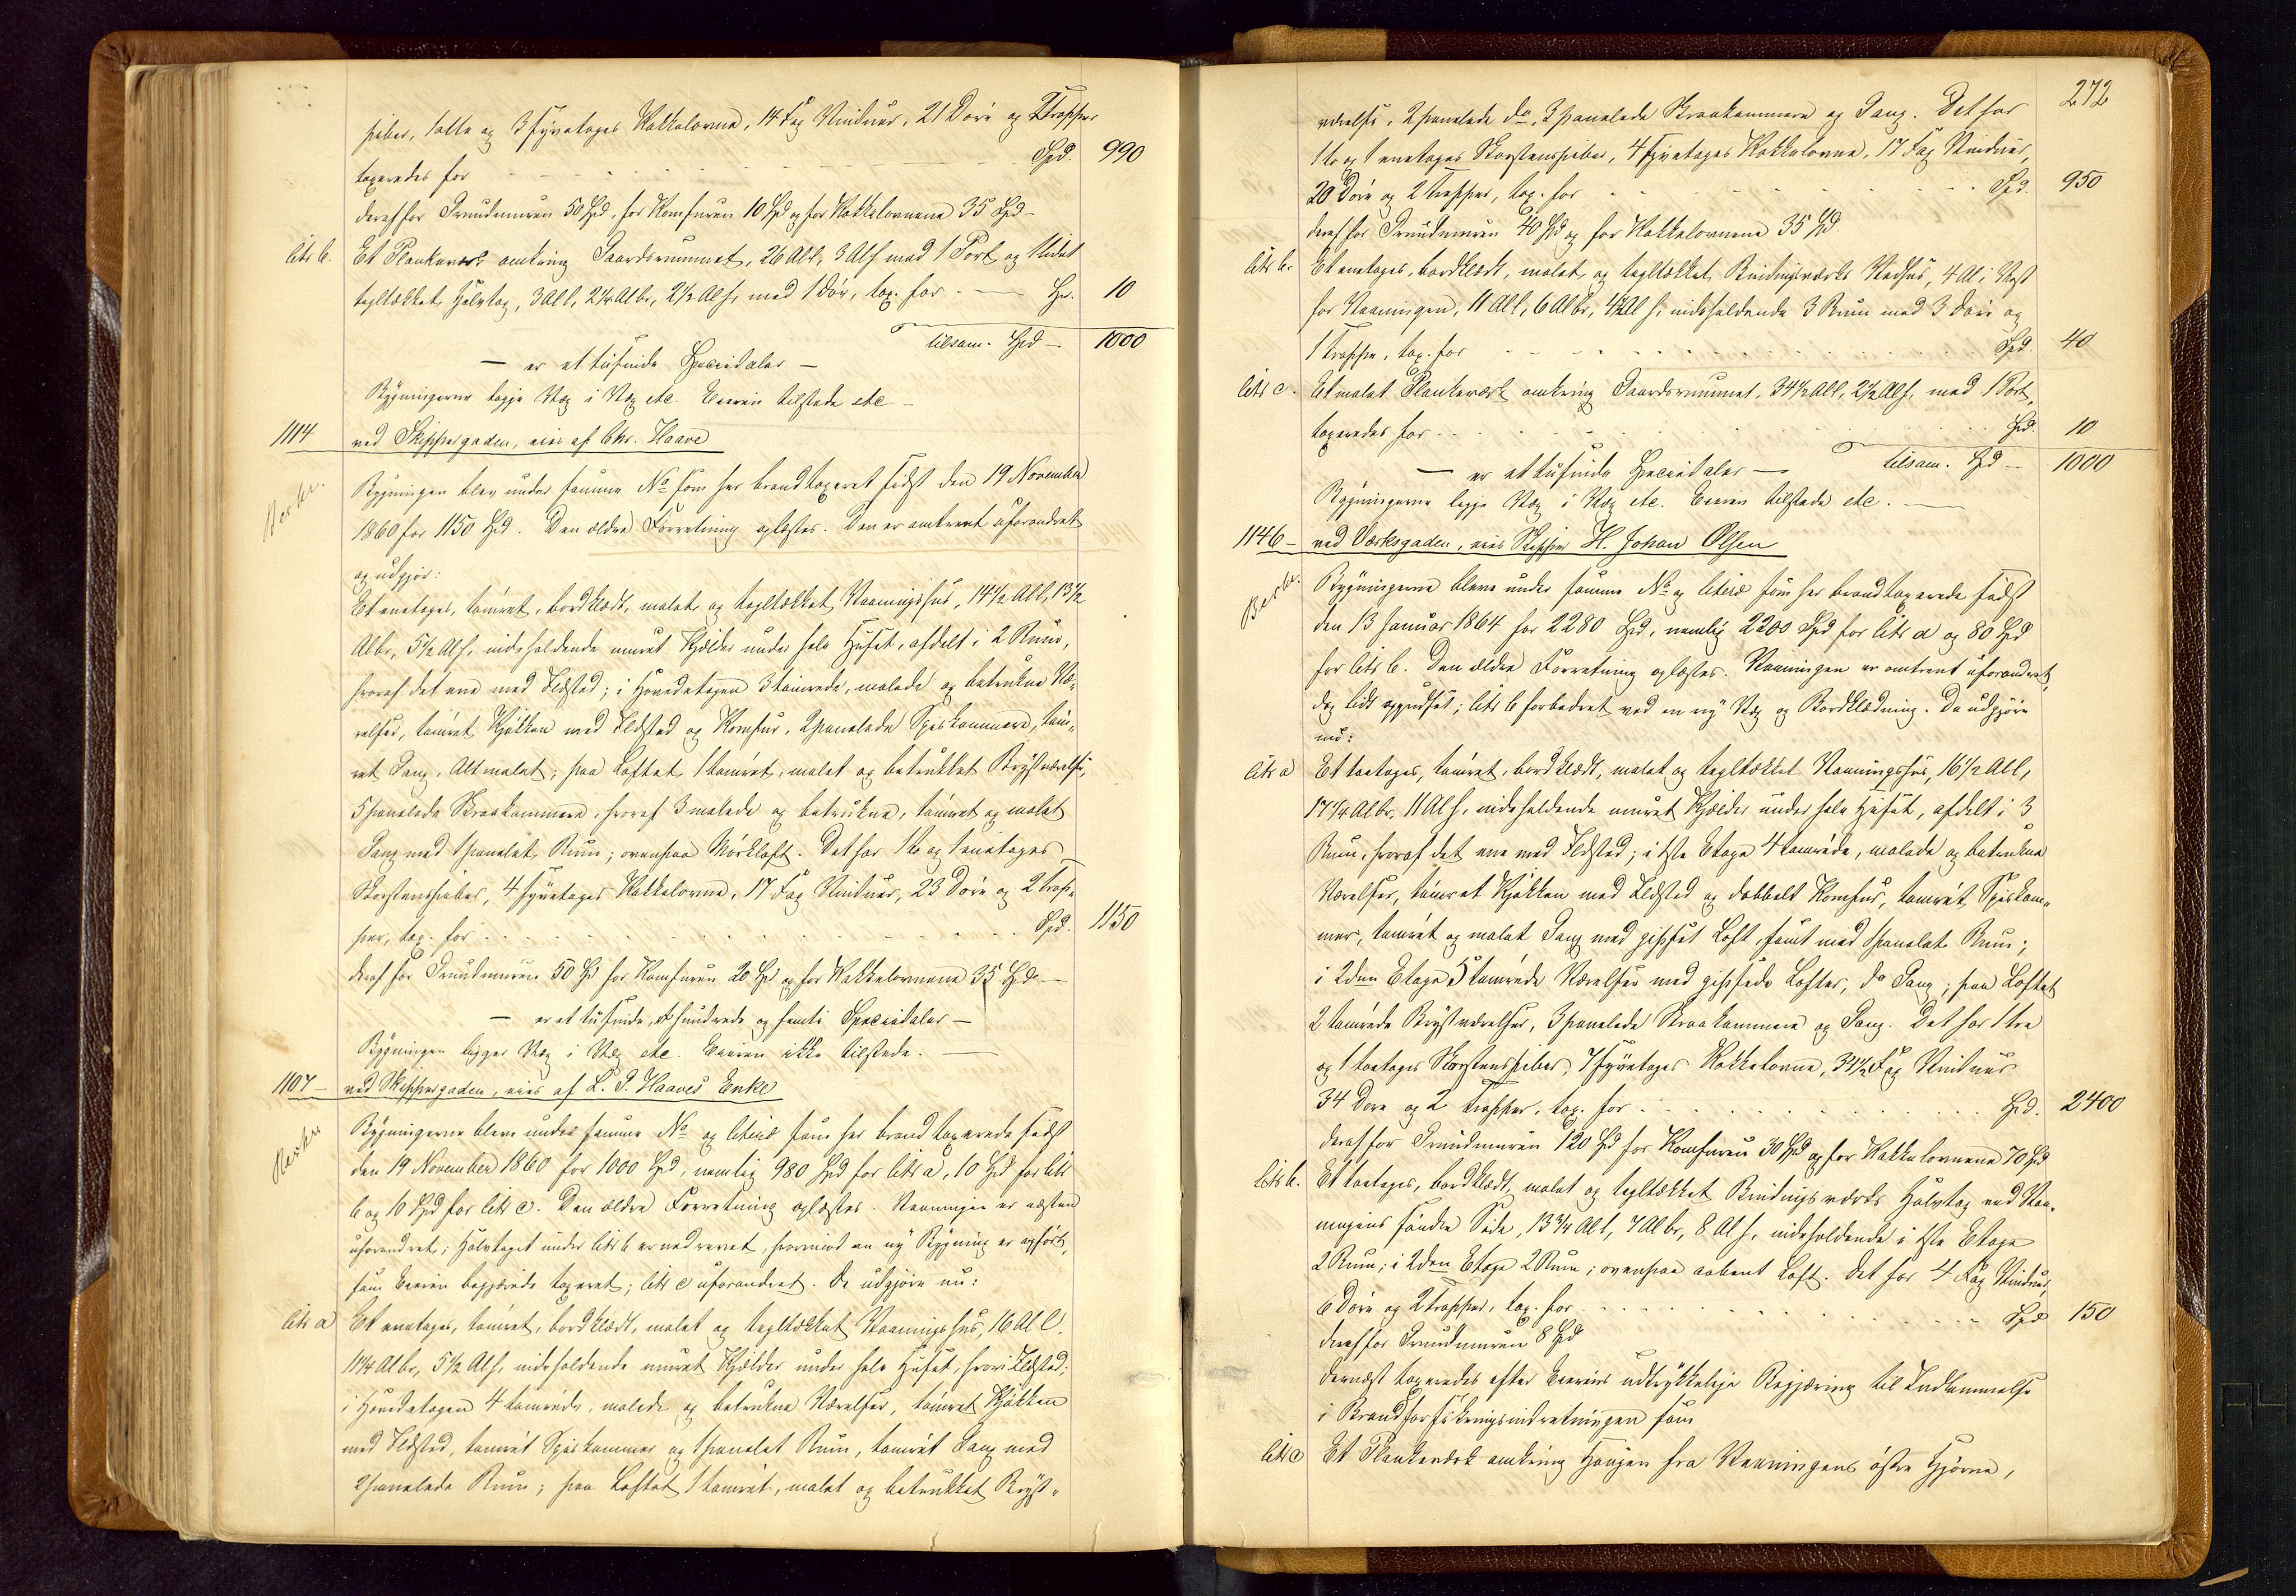 piber, 1 alle og 3 fyretages Kakkelovne, 14 Fag Vinduer, 21 Döre og 2 Trapper
taxeredes for Spd. 990
deraf for Grundmuren 50 Spd, for Komfuren 10 Spd og for Kakkelovnene 35 Spd -
litr b. Et Plankeværk omkring Gaardsrummet, 26 Al l, 3 Al h med 1 Port og 1 lidet
tegltækket Halvtag, 3 Al l, 2 1/4 Al br, 2 1/2 Al h, med 1 Dör, tax. for Spd. 10
tilsam. Spd - 1000
- er et tusinde Speciedaler -
Bygningerne ligge Væg i Væg etc. Eieren tilstede etc -
1114 ved Skippergaden, eies af Chr. Haave
Bygningen blev under samme No som her brandtaxeret sidst den 19 November
1860 for 1150 Spd. Den ældre Forretning oplæstes. Den er omtrent uforandret
og udgjör:
Et enetages, tömret, bordklædt, malet og tegltækket Vaaningshus, 14 1/2 Al l, 13 1/2
Al br, 5 1/2 Al h, indeholdende muret Kjelder under hele Huset, afdelt i 2 Rum,
hvoraf det ene med Ildsted; i Hovedetagen 3 tömrede, malede og betrukne Væ-
relser, tömret Kjökken med Ildsted og Komfur, 2 panelede Spiskammere, töm-
ret Gang, Alt malet; paa Loftet 1 tömret, malet og betrukket Brystværelse,
5 panelede Skraakammere, hvoraf 3 malede og betrukne, tömret og malet
Gang med 1 panelet Rum; ovenpaa Mörkloft. Det har 1 to og 1 enetages
Skorstenspiber, 4 fyretages Kakkelovne, 17 Fag Vinduer, 23 Döre og 2 Trap-
per, tax. for Spd. 1150
deraf for Grundmuren 50 Spd for Komfuren 20 Spd og for Kakkelovnene 35 Spd. -
- er et tusinde, et hundrede og femti Speciedaler -
Bygningen ligger Væg i Væg etc. Eieren ikke tilstede. -
1107 - ved Skippergaden, eies af L. P. Haaves Enke
Bygningerne bleve under samme No og litera som her brandtaxerede sidst
den 19 November 1860 for 1000 Spd, nemlig 980 Spd for litr a, 10 Spd for litr
b og 10 Spd for litr c. Den ældre Forretning oplæstes. Vaaningen er næsten
uforandret; Halvtaget under litr b er nedrevet, hvorimod en ny Bygning er opfört,
som Eieren begjærede taxeret; litr c uforandret. De udgjöre nu:
litr a Et enetages, tömret, bordklædt, malet og tegltækket Vaaningshus, 16 Al l,
11 1/4 Al br, 5 1/2 Al h, indeholdende muret Kjelder under hele Huset, hvori Ildsted;
i Hovedetagen 4 tömrede, malede og betrukne Værelser, tömret Kjökken
med Ildsted, tömret Spiskammer og 1 panelet Rum, tömret Gang med
2 panelede Rum; paa Loftet 1 tömret, malet og betrukket Bryst-
272
værelse, 2 panelede do, 3 panelede Skraakammere og Gang. Det har
1 to og 1 enetages Skorstenspiber, 4 fyretages Kakkelovne, 17 Fag Vinduer,
20 Döre og 2 Trapper, tax. for Spd. 950
deraf for Grundmuren 40 Spd og for Kakkelovnene 35 Spd.
litr b. Et enetages, bordklædt, malet og tegltækket Bindingsværks Vedhus, 4 Al i Vest
for Vaaningen, 11 Al l, 6 Al br, 4 1/2 Al h, indeholdende 3 Rum med 3 Döre og
1 Trappe, tax. for Spd. 40
litr c. Et malet Plankeværk omkring Gaardsrummet, 34 1/2 Al l, 2 1/2 Al h, med 1 Port,
taxeredes for Spd. 10
- er et tusinde Speciedaler - tilsam. Spd - 1000
Bygningerne ligge Væg i Væg etc. Eieren tilstede etc. -
1146 - ved Værksgaden, eies Skipper H. Johan Olsen
Bygningerne bleve under samme No og litera som her brandtaxerede sidst
den 13 Januar 1864 for 2280 Spd, nemlig 2200 Spd for litr a og 80 Spd
for litr b. Den ældre Forretning oplæstes. Vaaningen er omtrent uforandret,
dog lidt oppudset; litr b forbedret ved en ny Væg og Bordklædning. De udgjöre
nu:
litr a Et toetages, tömret, bordklædt, malet og tegltækket Vaaningshus, 16 1/2 Al l,
17 1/4 Al br, 11 Al h, indeholdende muret Kjelder under hele Huset, afdelt i 3
Rum, hvoraf det ene med Ildsted; i 1ste Etage 4 tömrede, malede og betrukne
Værelser, tömret Kjökken med Ildsted og dobbelt Komfur, tömret Spiskam-
mer, tömret og malet Gang med gipset Loft, samt med 1 panelet Rum;
i 2den Etage 5 tömrede Værelser med gipsede Lofter, do Gang; paa Loftet
2 tömrede Brystværelser, 3 panelede Skraakammere og Gang. Det har 1 tre
og 1 toetages Skorstenspiber, 7 fyretages Kakkelovne, 34 1/2 Fag Vinduer
34 Döre og 2 Trapper, tax. for Spd. 2400
deraf for Grundmuren 120 Spd for Komfuren 30 Spd og for Kakkelovnene 70 Spd
litr b. Et toetages, bordklædt, malet og tegltækket Bindingsværks Halvtag ved Vaa-
ningens söndre Side, 13 3/4 Al l, 7 Al br, 8 Al h, indeholdende i 1ste Etage
2 Rum; i 2den Etage 2 Rum; ovenpaa aabent Loft. Det har 4 Fag Vinduer,
6 Döre og 2 Trapper, tax. for Spd 150
deraf for Grundmuren 8 Spd
dernæst taxeredes efter Eierens udtrykkelige Begjæring til Indlemmelse
i Brandforsikringsindretningen som
litr c Et Plankeværk omkring Haugen fra Vaaningens östre Hjörne,